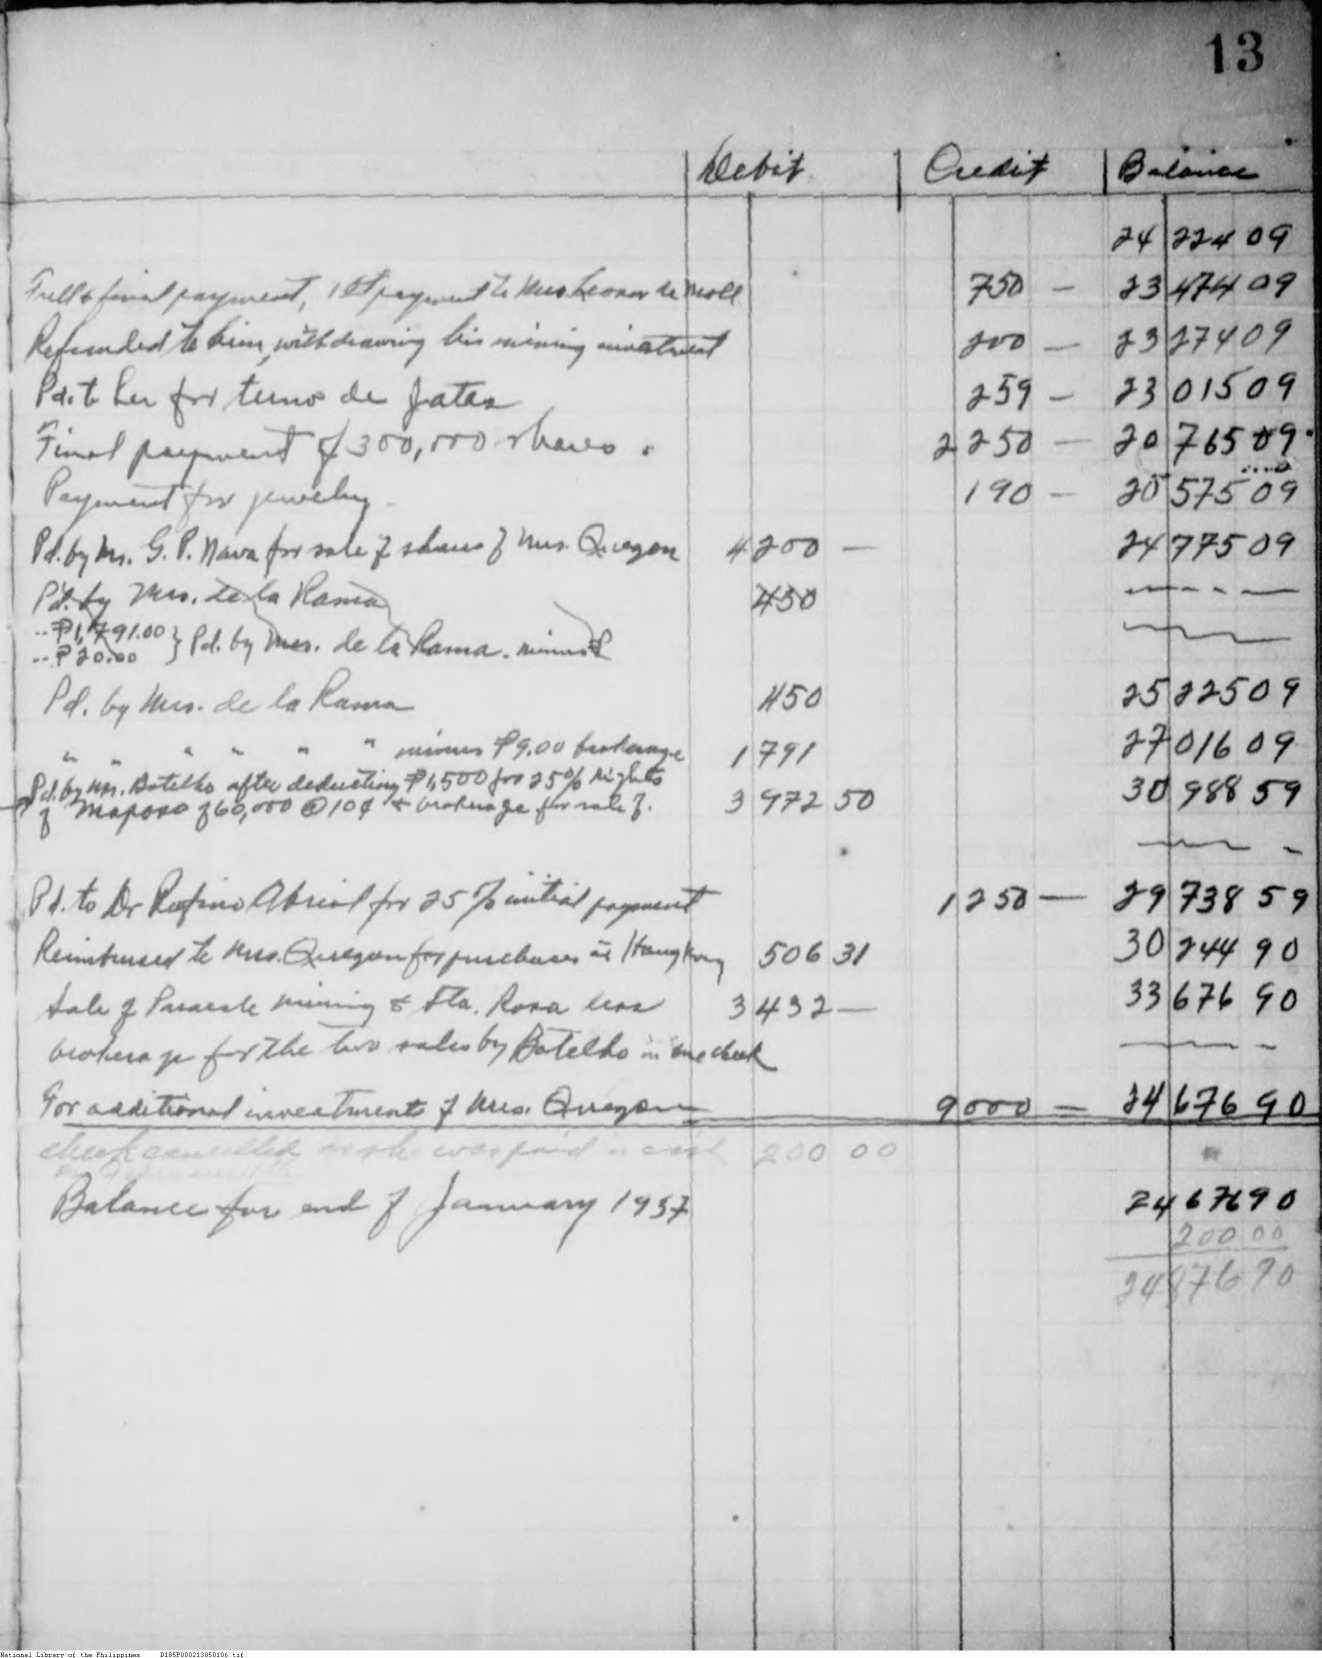 13
Debit Credit Balance
24 224 09
Full & final payment, 1st payment to Mrs Leonor de Moll 750 — 23 474 09
Refunded to him, withdrawing his mining investment 200 — 23 274 09
Pd. to her for terno de Jatas 259 — 23 015 09
Final payment of 300,000 shares. 2 250 — 20 765 09
Payment for jewelry 190 — 20 575 09
Pd. by Mr. G. P. Nava for sale of shares of Mrs. Quezon 4 200 — 24 775 09
Pd. by Mrs. de la Rama 450
₱1,791.00 } Pd. by Mrs. de la Rama. minus
₱20.00
Pd. by Mrs. de la Rama 450 25 225 09
" " " " " " minus ₱9.00 brokerage 1 791 27 016 09
Pd. by Mr. Botelho after deducting ₱1,500 for 25% rights
of Mapaso of 60,000 @ 10¢ & brokerage for sale of. 3 972 50 30 988 59
Pd. to Dr Rufino Abriol for 25% initial payment 1 250 — 29 738 59
Reimbursed to Mrs. Quezon for purchases in Hongkong 506 31 30 244 90
Sale of Paracale mining & Sta. Rosa less 3 432 — 33 676 90
brokerage for the two sales by Botelho in one check
For additional investments of Mrs. Quezon 9 000 — 24 676 90
check cancelled as she was paid in cash 200 00
Balance for end of January 1937 24 676 90
200 00
24 876 90
National Library of the Philippines D185P000213050106.tif